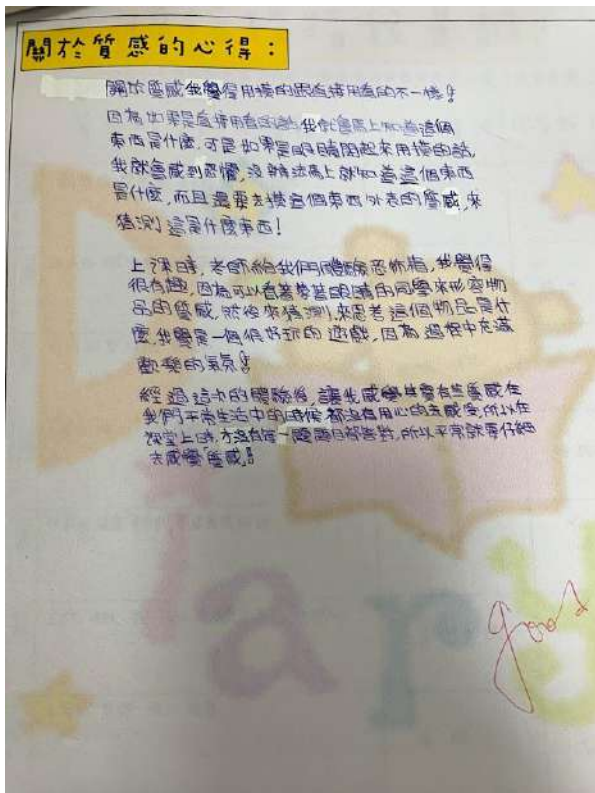 關於質感的心得：
關於質感我覺得用摸的跟直接用看的不一樣！
因為如果是直接用看的話我就會馬上知道這個
東西是什麼，可是如果是眼睛閉起來用摸的話，
我就會感到恐懼，沒辦法馬上就知道這個東西
是什麼，而且還要去摸這個東西外表的質感，來
猜測這是什麼東西！
上課時，老師給我們體驗恐怖箱，我覺得
很有趣，因為可以看著矇著眼睛的同學來形容物
品的質感，然後來猜測，來思考這個物品是什
麼，我覺是一個很好玩的遊戲，因為過程中充滿
歡樂的氣氛！
經過這次的體驗後，讓我感覺其實有些質感在
我們平常生活中的時候都沒有用心的去感受，所以在
課堂上時，才沒有每一題題目都答對，所以平常就要仔細
去感覺「質感」！
good
lary